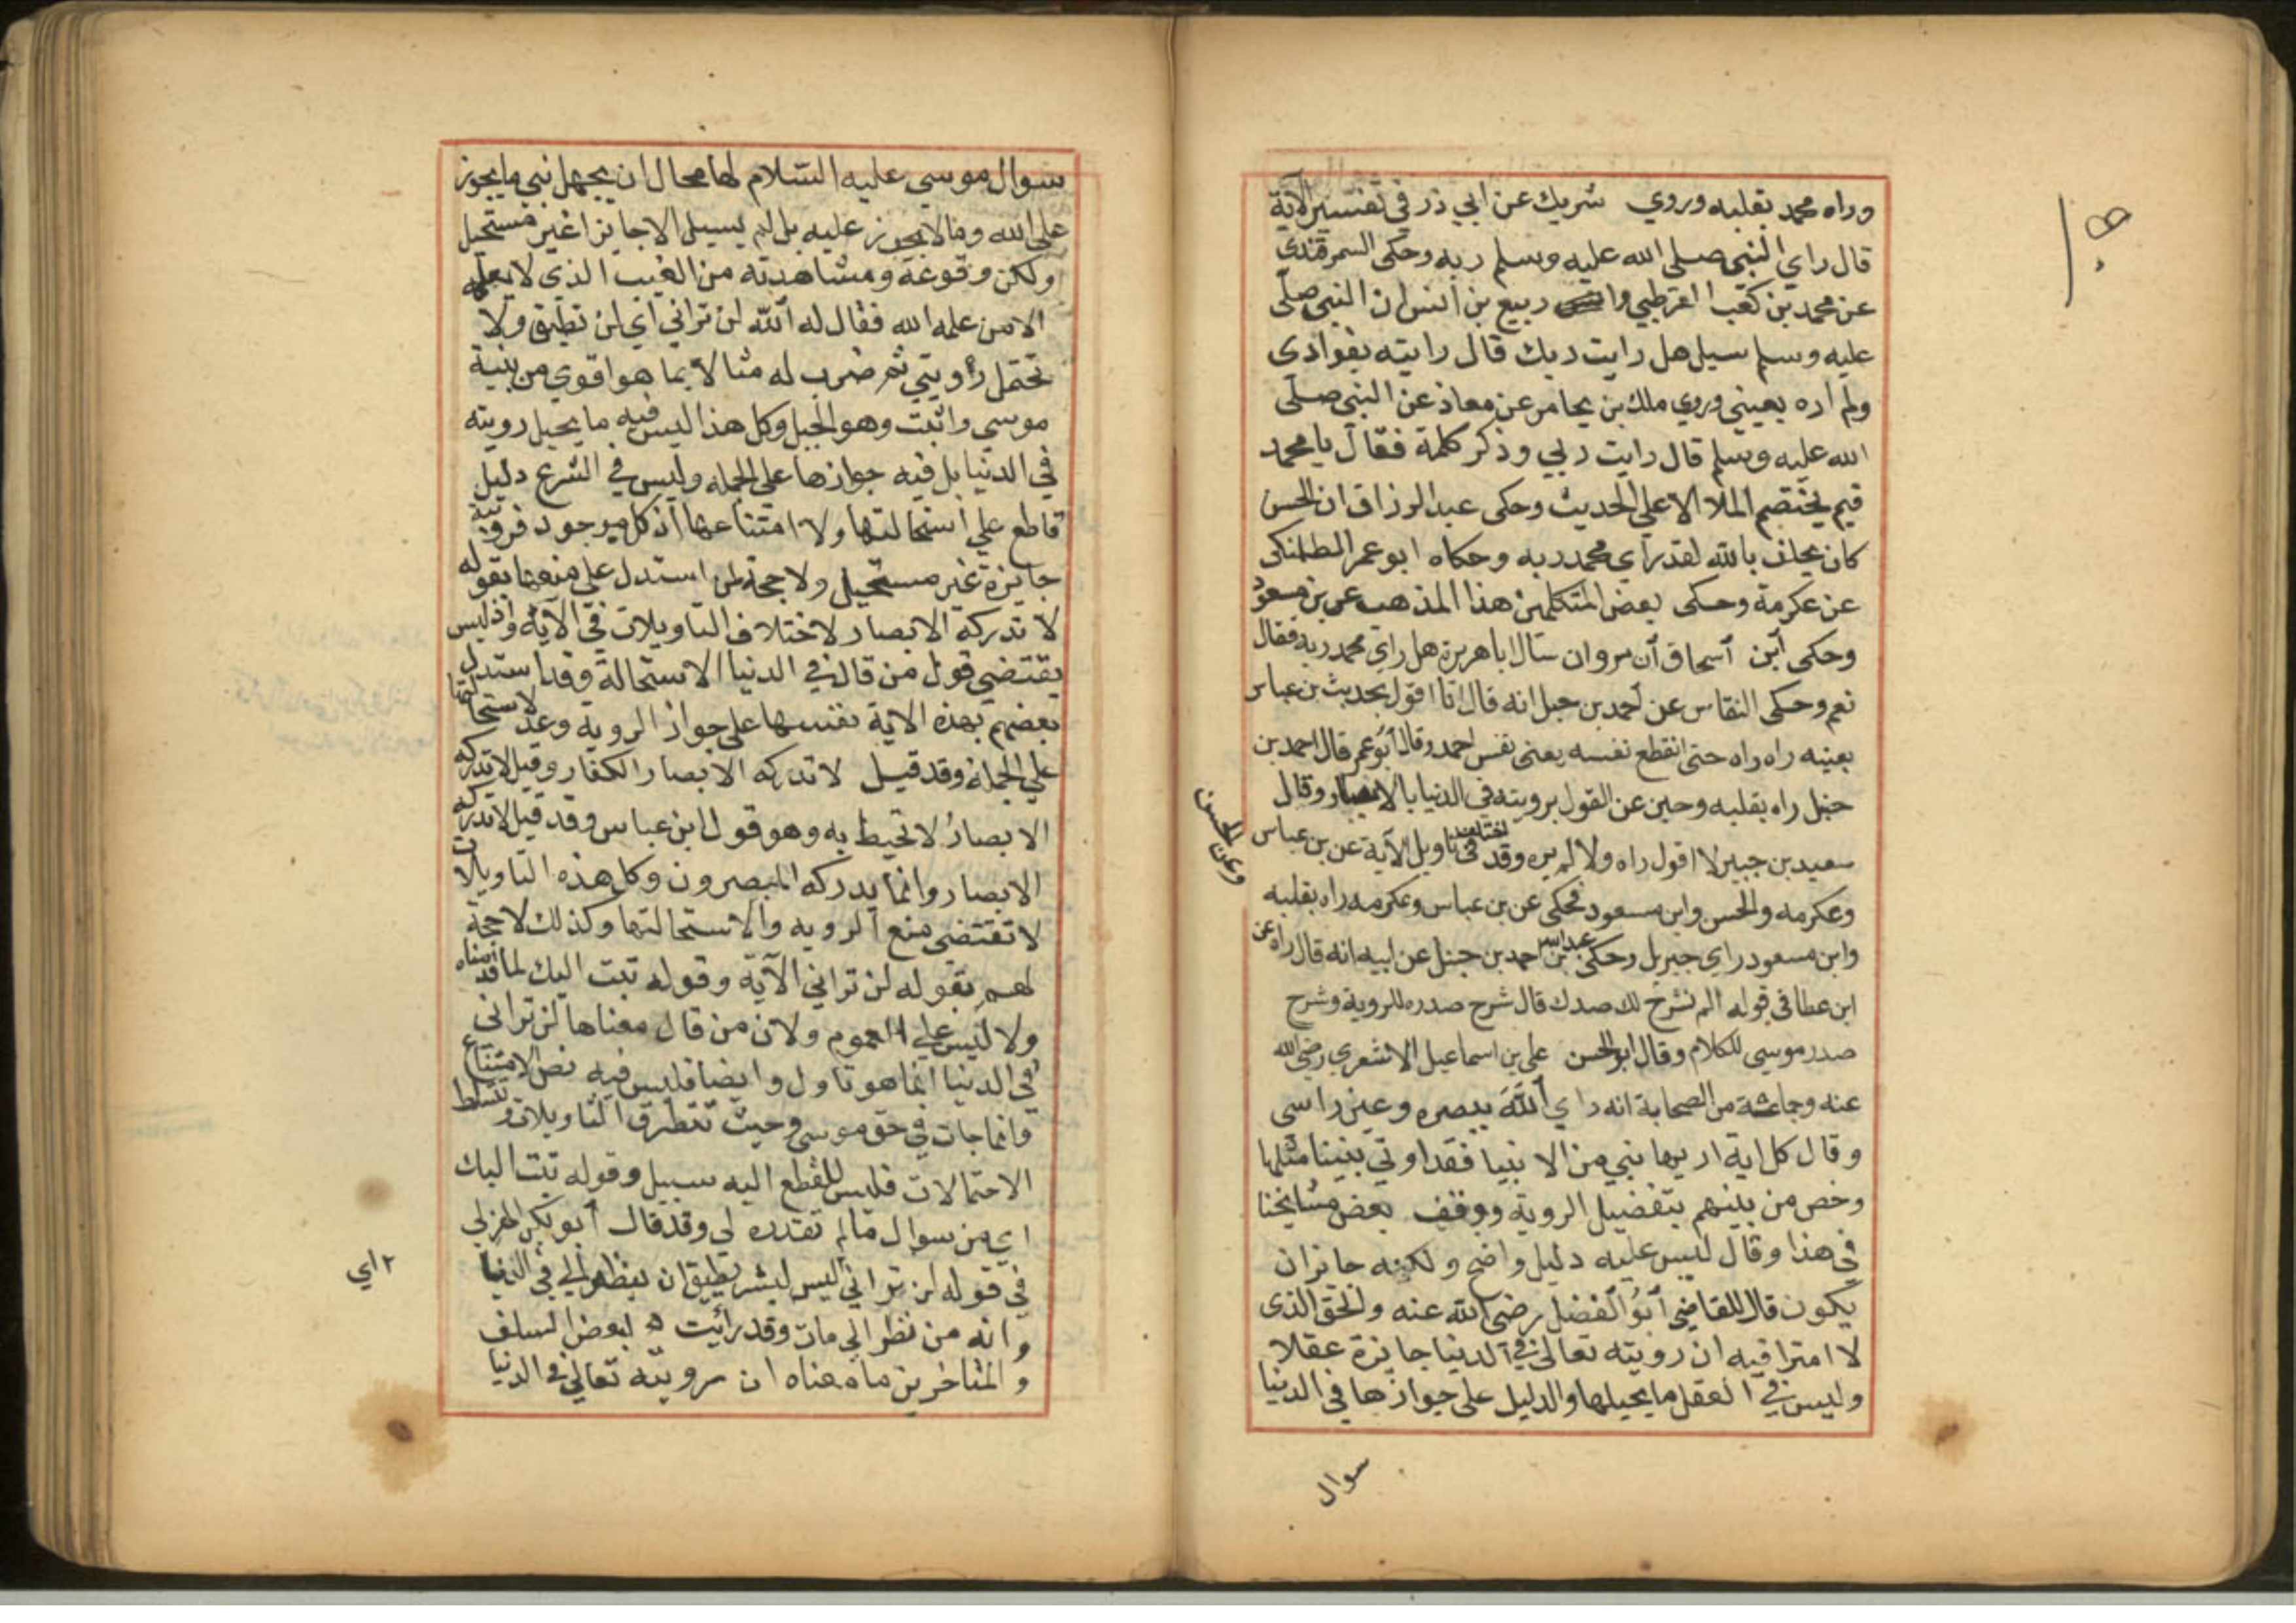 وراه محمد بقلبه وروي شريك عن ابي ذر في تفسير الآية
قال راي النبي صلى الله عليه وسلم ربه وحكى السمرقندى
عن محمد بن كعب القرظبي و ربيع بن انس ان النبي صلى
عليه وسلم سيل هل رايت ربك قال رايته بفوادى
ولم اره بعيني وروي ملك بن يخامر عن معاذ عن النبي صلى
الله عليه وسلم قال رايت ربي وذكر كلمة فقال يا محمد
فيم يختصم الملا الاعلى الحديث وحكى عبد الرزاق ان الحسن
كان يحلف بالله لقد راي محمد ربه وحكاه ابو عمر الطلمنكى
عن عكرمة وحكى بعض المتكلمين هذا المذهب عن بن مسعود
وحكى ابن اسحاق ان مروان سال ابا هريرة هل راي محمد ربه فقال
نعم وحكى النقاس عن احمد بن حبل انه قال انا اقول بحديث بن عباس
بعينه راه راه حتى انقطع نفسه يعنى نفس احمد وقال ابو عمر قال احمد بن
حنبل راه بقلبه وجبن عن القول برويته في الدنيا بالابصار وقال
سعيد بن جبير لا اقول راه ولا لم يره وقد اختلف في تاويل الآية عن بن عباس
وعكرمه والحسن وابن مسعود فحكى عن بن عباس وعكرمه راه بقلبه
وعن الحسن
وابن مسعود راي جبريل وحكى عبد الله بن احمد بن حنبل عن ابيه انه قال راه عن
ابن عطا في قوله الم نشرح لك صدك قال شرح صدره للروية وشرح
صدر موسى للكلام وقال ابو الحسن على بن اسماعيل الاشعري رضي الله
عنه وجماعة من الصحابة انه راي الله ببصره وعين راسى
وقال كل اية اريها نبي من الانبيا فقد اوتي نبينا مثلها
وخص من بينهم بتفضيل الروية ووقف بعض مشايخنا
في هذا وقال ليس عليه دليل واضح ولكنه جايز ان
يكون قال القاضي ابو الفضل رضي الله عنه ولحق الذى
لا امترا فيه ان رويته تعالى في الدنيا جايزة عقلا
وليس في العقل ما يحيلها والدليل على جوازها في الدنيا
سوال
سوال موسي عليه السلام لها محال ان يجهل نبي ما يجوز
على الله وما لا يجوز عليه بل لم يسيل الا جايزا غير مستحيل
ولكن وقوعه ومشاهدته من الغيب الذى لا يعلمه
الا من علمه الله فقال له الله لن تراني اي لن تطيق ولا
تحتمل رؤويتي ثم ضرب له مثالا بما هو اقوي من بنية
موسي واثبت وهو الجبل وكل هذا ليس فيه ما يحيل رويته
في الدنيا بل فيه جوازها على الجمله وليس في الشرع دليل
قاطع علي استحالتها ولا امتناعها اذ كل موجود فرويته
جايزة غير مستحيل ولا حجة لمن استدل على منعها بقوله
لا تدركه الابصار لاختلاف التاويلات في الآية واذ ليس
يقتضي قول من قال في الدنيا الاستحالة وقد استدل
بعضهم بهذه الاية نفسها على جواز الروية وعد لاستحالتها
علي الجملة وقد قيل لا تدركه الابصار الكفار وقيل لا تدركه
الابصارُ لا تحيط به وهو قول ابن عباس وقد قيل لا تدركه
الابصار وانما يدركه المبصرون وكل هذه التاويلات
لا تقتضي منع الرويه والاستحالتها وكذلك لا حجة
لهم بقوله لن تراني الآية وقوله تبت اليك لما قدمناه
ولا ليس على العموم ولان من قال معناها لن تراني
في الدنيا انما هو تاول وايضا فليس فيه نص الامتناع
وانما جات في حق موسى وحيث تتطرق التاويلات وتتسلط
الاحتمالات فليس للقطع اليه سبيل وقوله تبت اليك
اي من سوال مالم تقدره لي وقد قال ابو بكر الهزلي
في قوله لن تراني اليس لبشر يطيق ان ينظر الي في الدنيا
٢ اي
وانه من نظر الي مات وقد رأيت لبعض السلف
والمتاخرين ما معناه ان رويته تعالى في الدنيا